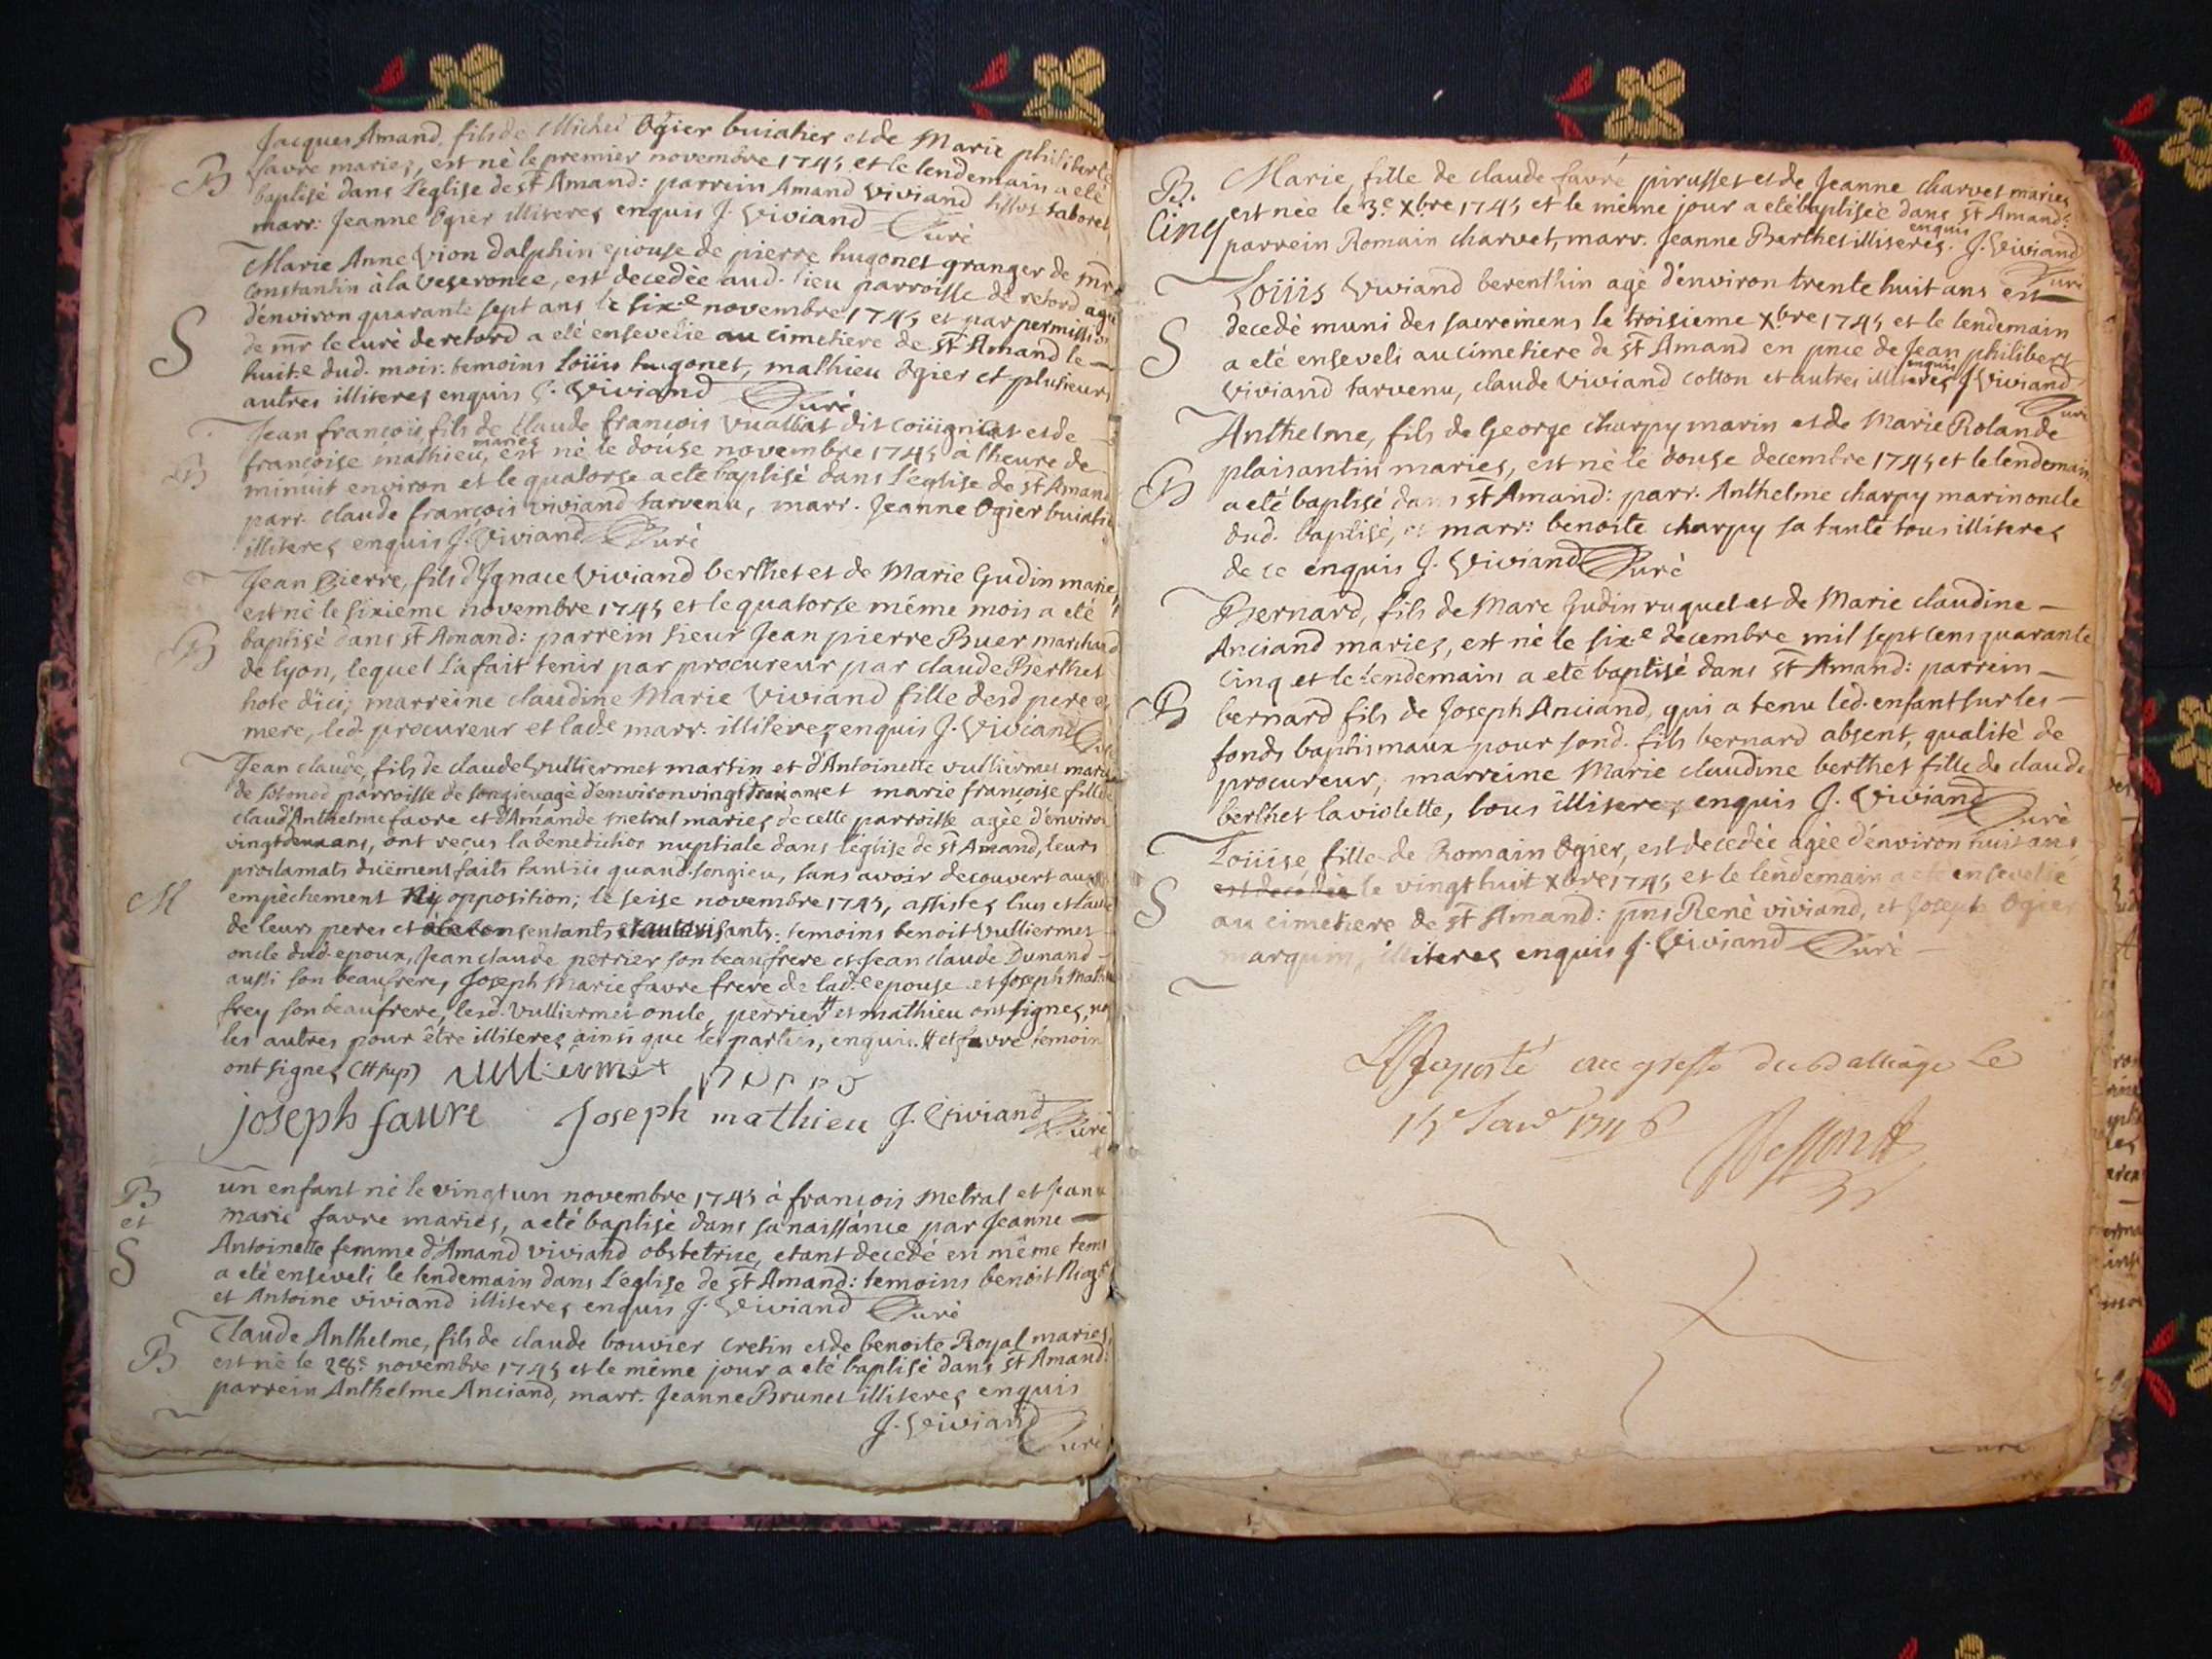 Jacques Amand, fils de Michel Ogier buiatier et de Marie philiberte
B favre mariez, est né le premier novembre 1745 et le lendemain a eté
baptisé dans L'eglise de st Amand: parrein Amand Viviand
marr: Jeanne Ogier illiterez enquis J. Viviand Curé
Marie Anne Vion dalphin epouse de pierre hugonet granger de mr
Constantin à la Veseronce, est decedée aud. lieu parroisse de retord agée
d'environ quarante sept ans le six.e novembre 1745 et par permission
S de mr le curé de retord a eté ensevelie au cimetiere de st Amand le
huit.e dud. mois: temoins Loüis hugonet, mathieu Ogier et plusieurs
autres illiterez enquis J. Viviand Curé
Jean françois fils de Claude françois Vualliat dit et de
B françoise mathieu, mariez est né le douse novembre 1745 à l'heure de
minuit environ et le quatorse a eté baptisé dans L'eglise de st Amand
parr. claude françois viviand tarvenu, marr. Jeanne Ogier buiatier
illiterez enquis J. Viviand Curé
Jean Pierre, fils d'Ignace Viviand berthet et de Marie Gudin mariez
est né le sixieme novembre 1745 et le quatorse même mois a eté
B baptisé dans st Amand: parrein sieur Jean pierre Buer marchand
de lyon, lequel L'a fait tenir par procureur par claude Berthet
hote d'ici; marreine claudine Marie Viviand fille desd pere et
mere, led. procureur et lad.e marr. illiterez enquis J. Viviand Curé
Jean claude, fils de claude Vulliermet martin et d'Antoinette vulliermet mariez
de parroisse de songieu agé d'environ vingt ans et marie françoise fille de
claud'Anthelme favre et d'Amande metral mariez de cette parroisse agée d'environ
vingt deux ans, ont reçus la benediction nuptiale dans l'eglise de st Amand, leurs
proclamats düement faits tant ici qu'aud. songieu, sans avoir decouvert aucun
M empêchement Ny opposition; le seise novembre 1745, assistez l'un et l'autre
de leurs peres et consentants et autorisants: temoins benoit Vulliermet
oncle dud. epoux, Jean claude perrier son beaufrere et Jean claude Dunand
aussi son beaufrere, Joseph Marie favre frere de lad.e epouse et Joseph Mathieu
frey son beaufrere, lesd. Vulliermet oncle, perrier # et mathieu ont signez, non
les autres pour être illiterez ainsi que les parties, enquis. # et favre temoin
ont signez (# sup) vulliermet
joseph favre Joseph mathieu J. Viviand Curé
B un enfant né le vingt un novembre 1745 à françois metral et Jeanne
et marie favre mariés, a eté baptisé dans sa naissance par Jeanne
Antoinette femme d'Amand Viviand obstetrice, etant decedé en même tems
S a eté enseveli le lendemain dans L'eglise de st Amand: temoins benoit
et Antoine viviand illiterez enquis J. Viviand Curé
Claude Anthelme, fils de claude bouvier cretin et de benoite Royal mariez,
B est né le 28.e novembre 1745 et le même jour a eté baptisé dans st Amand:
parrein Anthelme Anciand, marr. Jeanne Brunet illiterez enquis
J. Viviand
Curé
B. Marie, fille de claude favre pirusset et de Jeanne charvet mariez
Cinq est née le 3.e Xbre 1745 et le même jour a eté baptisée dans st Amand:
parrein Romain charvet, marr. Jeanne Berthet illiterez. enquis J. Viviand
Curé
Loüis Viviand berenthin agé d'environ trente huit ans est
decedé muni des sacremens le troisieme Xbre 1745 et le lendemain
S a eté enseveli au cimetiere de st Amand en pnce de Jean philibert
Viviand tarvenu, claude Viviand cotton et autres illiterez enquis J. Viviand
Curé
Anthelme, fils de George charpy marin et de Marie Rolande
plaisantin mariez, est né le douse decembre 1745 et le lendemain
B a eté baptisé dans st Amand: parr. Anthelme charpy marin oncle
dud. baptisé, et marr: benoite charpy sa tante tous illiterez
de ce enquis J. Viviand Curé
Bernard, fils de Marc Gudin ruquet et de Marie claudine
Anciand mariez, est né le six.e decembre mil sept cens quarante
cinq et le lendemain a eté baptisé dans st Amand: parrein
B bernard fils de Joseph Anciand, qui a tenu led. enfant sur les
fonds baptismaux pour sond. fils bernard absent, qualité de
procureur; marreine Marie claudine berthet fille de claude
berthet laviolette, tous illiterez enquis J. Viviand
Curé
Loüise fille de Romain Ogier, est decedée agée d'environ huit ans,
est decedée le vingt huit Xbre 1745 et le lendemain a eté ensevelie
S au cimetiere de st Amand: pnts René viviand, et Joseph Ogier
marquin, illiterez enquis J. Viviand Curé
aporté au greffe du Balliage le
15e Janv 1746